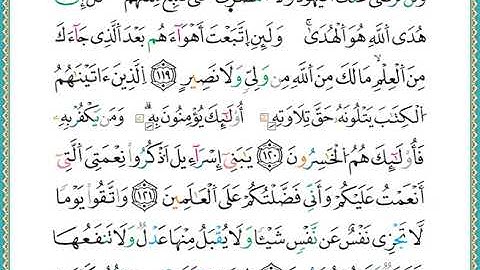 هُدَى اَللَّهِ هُوَ اَلْهُدَىٰۖ وَلَئِنِ اِتَّبَعْتَ أَهْوَآءَهُم بَعْدَ اَلذِي جَآءَكَ
مِنَ اَلْعِلْمِ مَا لَكَ مِنَ اَللَّهِ مِنْ وَلِيّٖ وَلَا نَصِيرٍۖ ١١٩ اِلذِينَ ءَاتَيْنَٰهُمُ
اُلْكِتَٰبَ يَتْلُونَهُۥ حَقَّ تِلَاوَتِهِۦٓ أُوْلَٰٓئِكَ يُؤْمِنُونَ بِهِۦۖ وَمَنْ يَكْفُرْ بِهِۦ
فَأُوْلَٰٓئِكَ هُمُ اُلْخَٰسِرُونَۖ ١٢٠ يَٰبَنِےٓ إِسْرَآءِيلَ اَذْكُرُوا نِعْمَتِيَ اَلتِےٓ
أَنْعَمْتُ عَلَيْكُمْ وَأَنِّے فَضَّلْتُكُمْ عَلَى اَلْعَٰلَمِينَۖ ١٢١ وَاتَّقُوا يَوْماٗ
لَّا تَجْزِے نَفْسٌ عَن نَّفْسٖ شَيْـٔاٗ وَلَا يُقْبَلُ مِنْهَا عَدْلٞ وَلَا تَنفَعُهَا